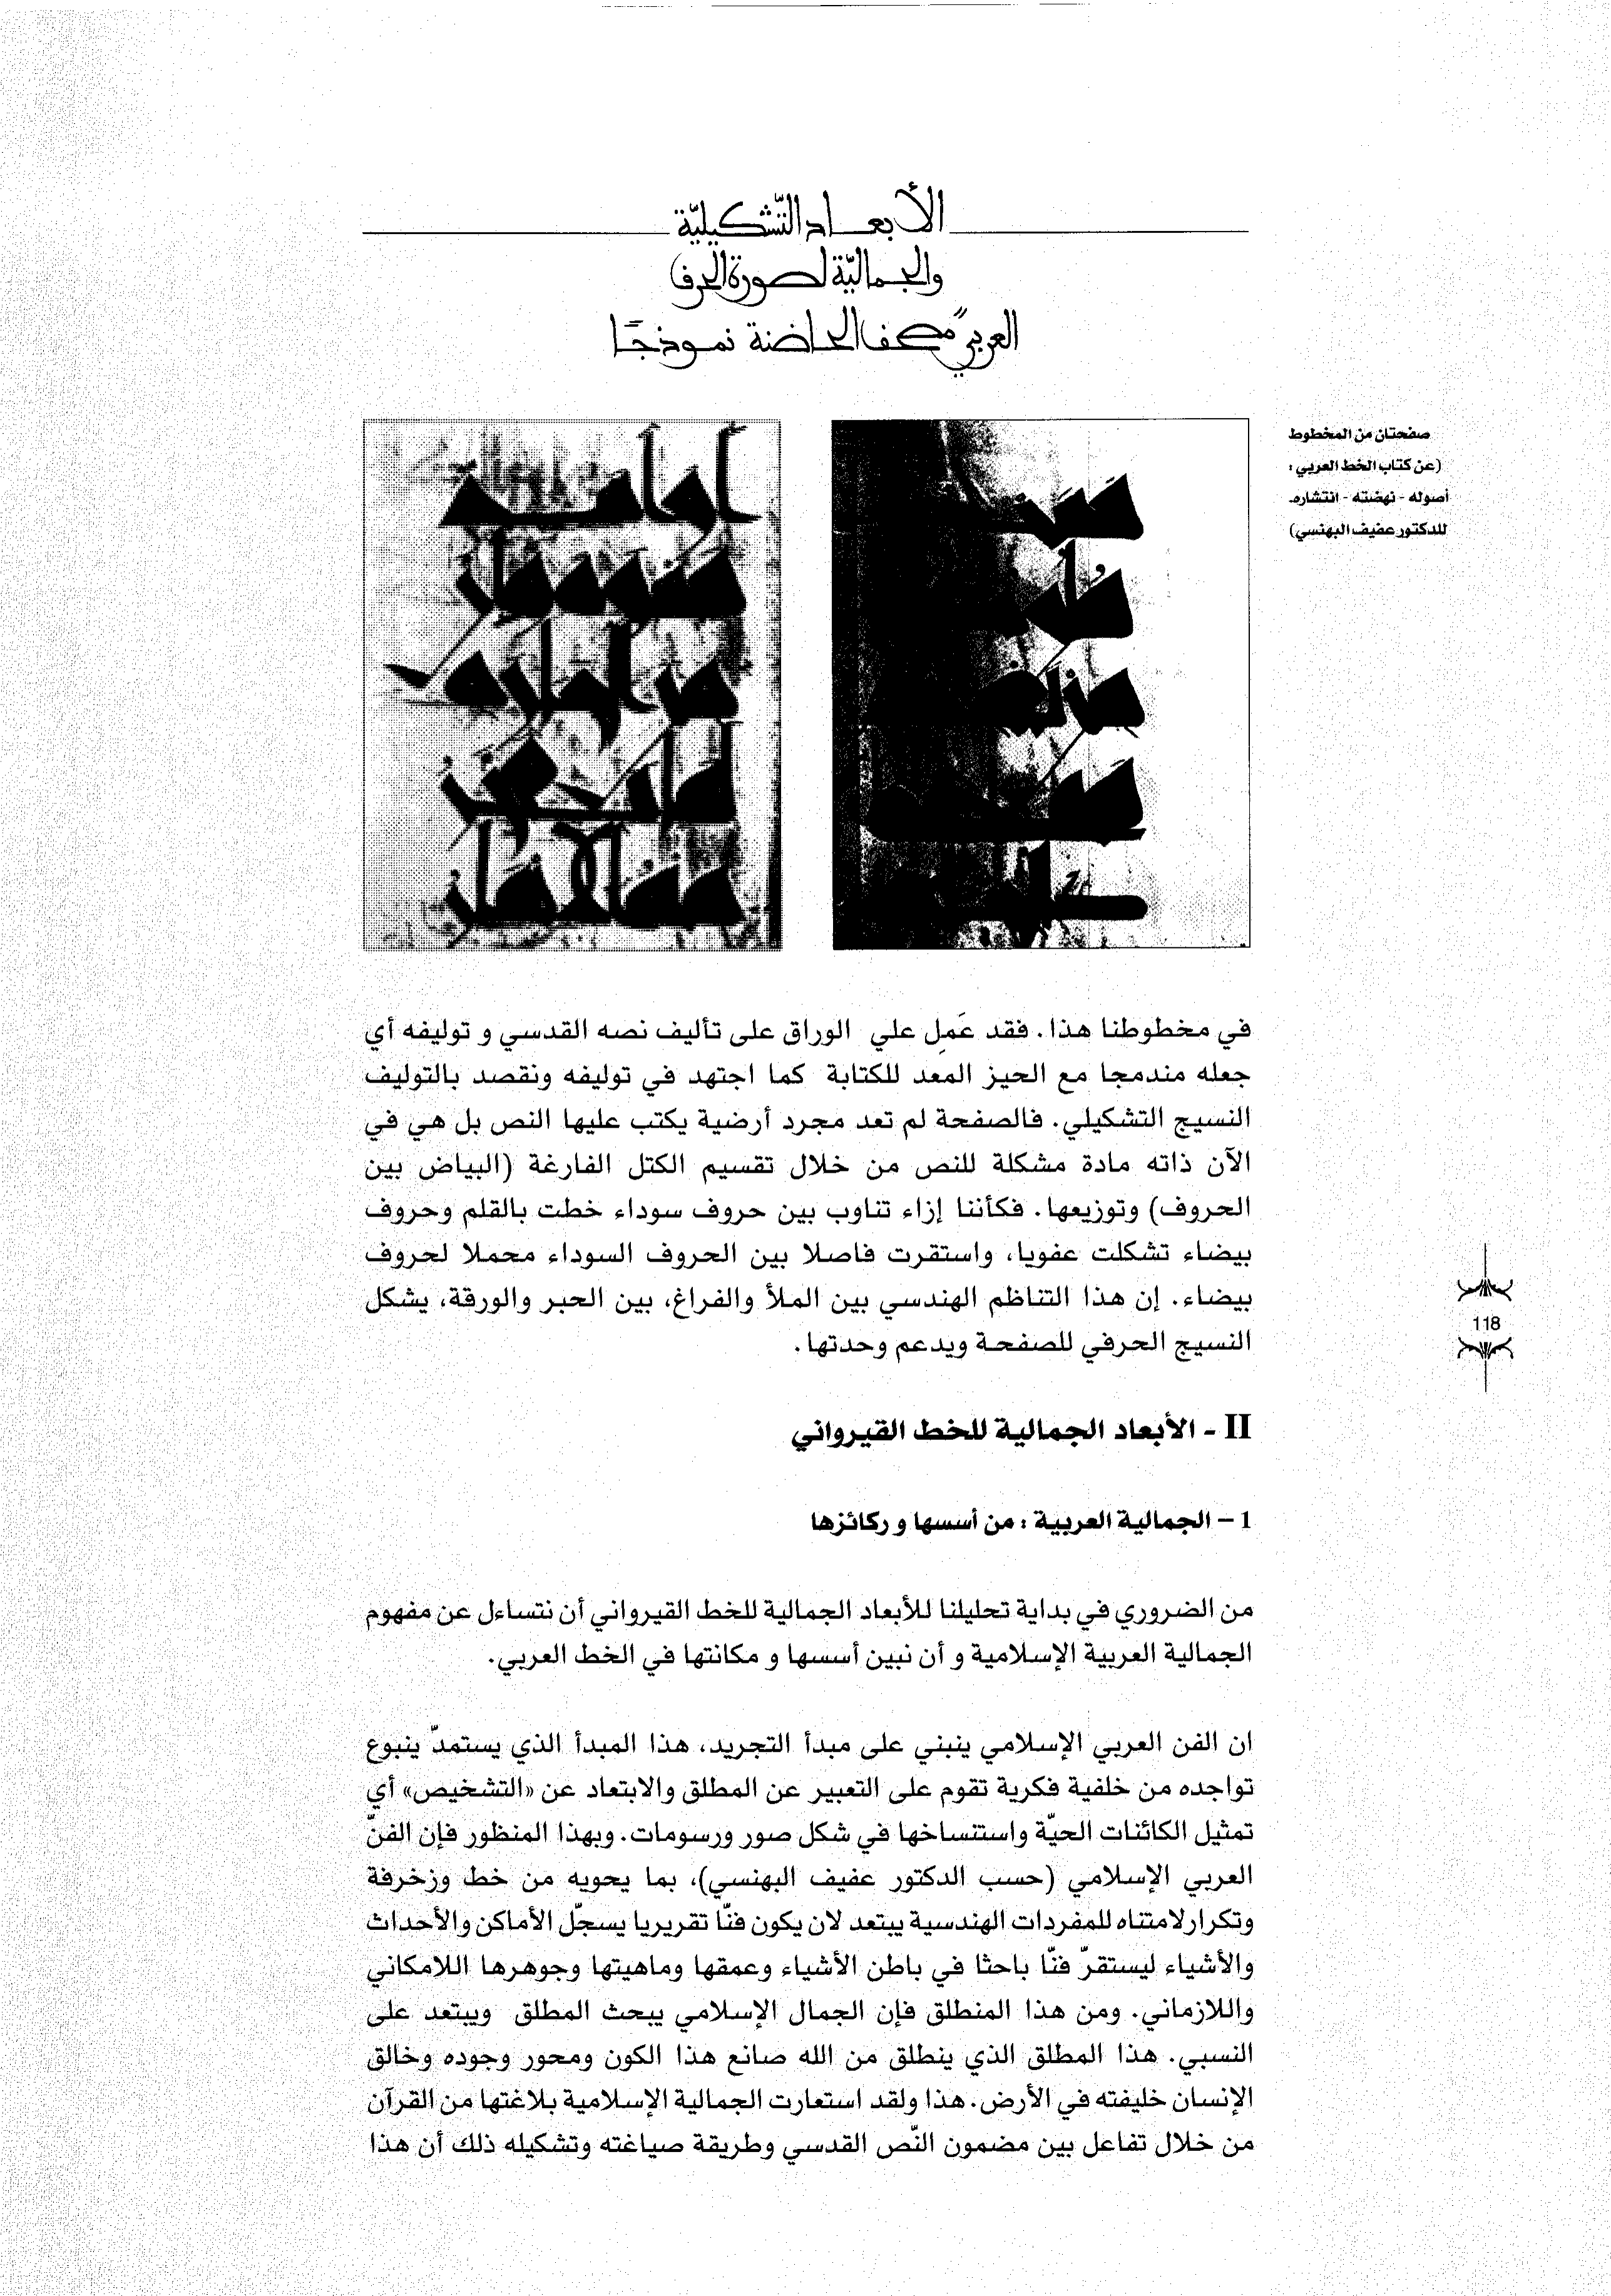 الأبعاد التّشكيليّة
والجماليّة لصورة الحرف
العربيّ مصحف الحاضنة نموذجًا
صفحتان من المخطوط
(عن كتاب الخط العربي :
أصوله - نهضته - انتشاره.
للدكتور عفيف البهنسي)
في مخطوطنا هذا. فقد عَمِل علي الوراق على تأليف نصه القدسي و توليفه أي
جعله مندمجا مع الحيز المعد للكتابة كما اجتهد في توليفه ونقصد بالتوليف
النسيج التشكيلي. فالصفحة لم تعد مجرد أرضية يكتب عليها النص بل هي في
الآن ذاته مادة مشكلة للنص من خلال تقسيم الكتل الفارغة (البياض بين
الحروف) وتوزيعها. فكأننا إزاء تناوب بين حروف سوداء خطت بالقلم وحروف
بيضاء تشكلت عفويا، واستقرت فاصلا بين الحروف السوداء محملا لحروف
بيضاء. إن هذا التناظم الهندسي بين الملأ والفراغ، بين الحبر والورقة، يشكل
النسيج الحرفي للصفحة ويدعم وحدتها.
118
II - الأبعاد الجمالية للخط القيرواني
1 – الجمالية العربية : من أسسها و ركائزها
من الضروري في بداية تحليلنا للأبعاد الجمالية للخط القيرواني أن نتساءل عن مفهوم
الجمالية العربية الإسلامية و أن نبين أسسها و مكانتها في الخط العربي.
ان الفن العربي الإسلامي ينبني على مبدأ التجريد، هذا المبدأ الذي يستمدّ ينبوع
تواجده من خلفية فكرية تقوم على التعبير عن المطلق والابتعاد عن «التشخيص» أي
تمثيل الكائنات الحيّة واستنساخها في شكل صور ورسومات. وبهذا المنظور فإن الفنّ
العربي الإسلامي (حسب الدكتور عفيف البهنسي)، بما يحويه من خط وزخرفة
وتكرار لامتناه للمفردات الهندسية يبتعد لان يكون فنّا تقريريا يسجّل الأماكن والأحداث
والأشياء ليستقرّ فنّا باحثا في باطن الأشياء وعمقها وماهيتها وجوهرها اللامكاني
واللازماني. ومن هذا المنطلق فإن الجمال الإسلامي يبحث المطلق ويبتعد على
النسبي. هذا المطلق الذي ينطلق من الله صانع هذا الكون ومحور وجوده وخالق
الإنسان خليفته في الأرض. هذا ولقد استعارت الجمالية الإسلامية بلاغتها من القرآن
من خلال تفاعل بين مضمون النّص القدسي وطريقة صياغته وتشكيله ذلك أن هذا